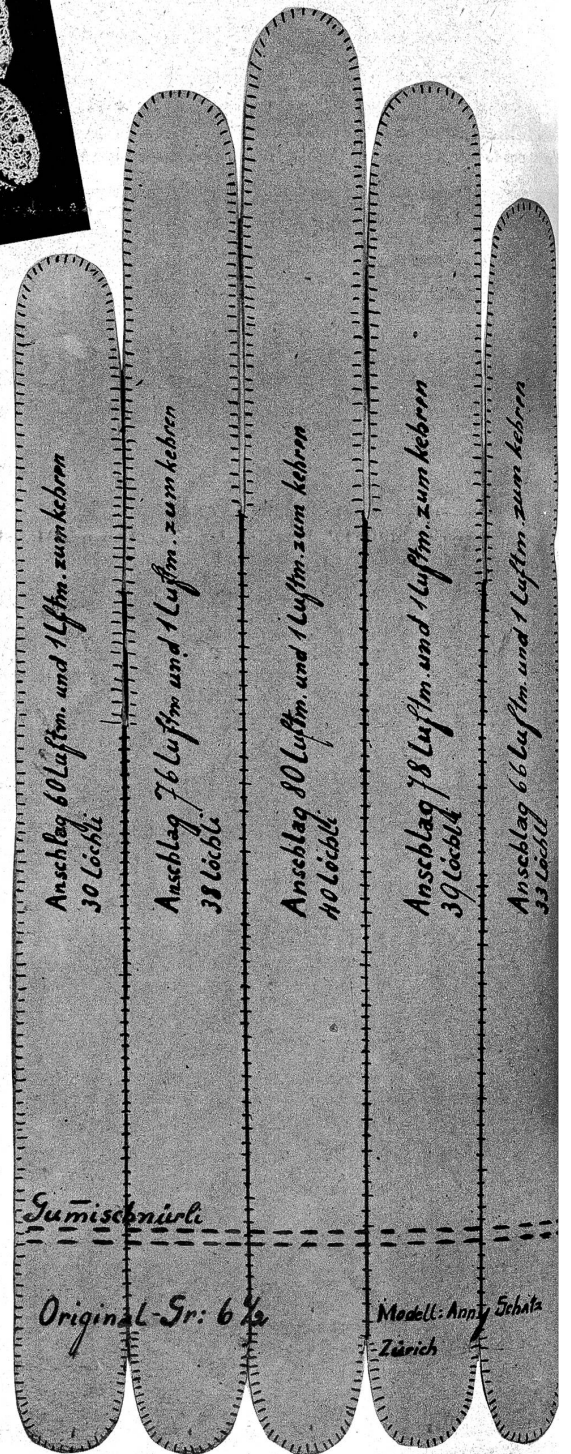 Anschlag 60 Luftm. und 1 Lftm. zum kehren
30 Löchli
Anschlag 76 Luftm und 1 Luftm. zum kehren
38 Löchli
Anschlag 80 Luftm. und 1 Luftm. zum kehren
40 Löchli
Anschlag 78 Luftm. und 1 Luftm. zum kehren
39 Löchli
Anschlag 66 Luftm. und 1 Luftm. zum kehren
33 Löchli
Gum̄ischnürli
Original-Gr: 6 ½
Modell: Anny Schätz
Zürich